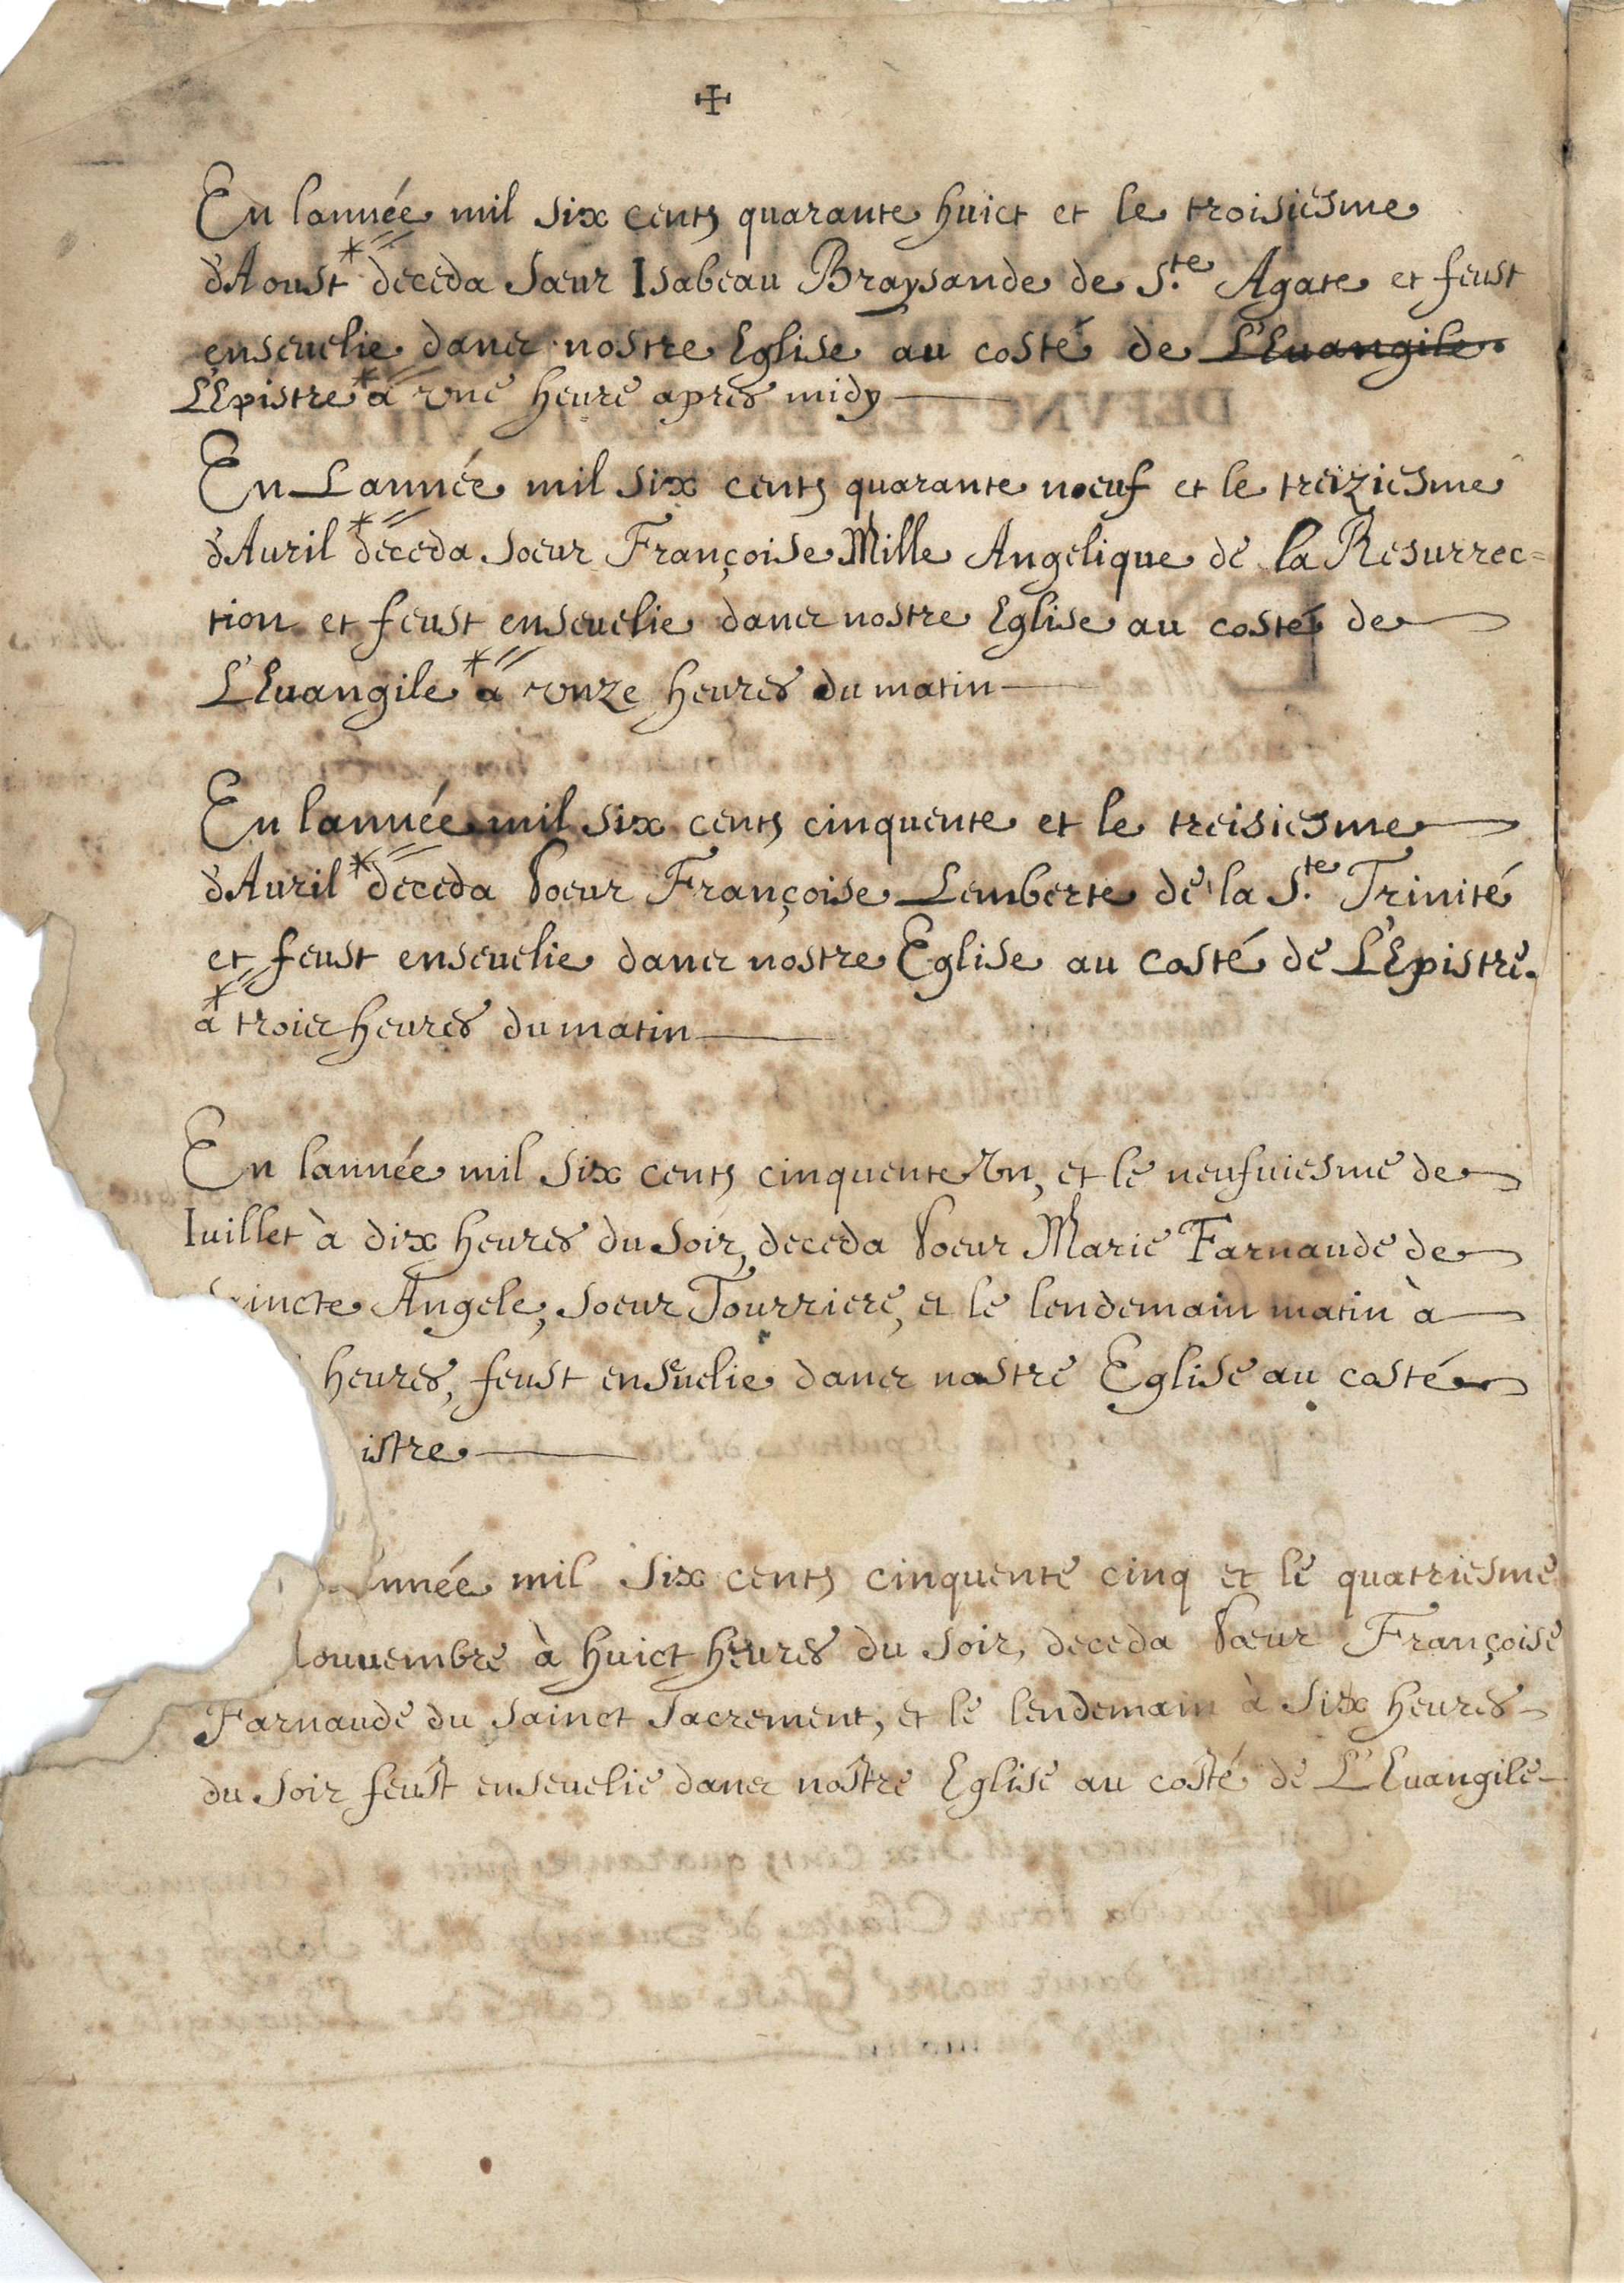 En lannée mil six cents quarante huict et le troisiesme
d'Aoust * deceda Sœur Isabeau Braysande de S.te Agate et feust
enseuelie dans nostre Eglise au costé de L'Euangile.
L'Epistre * à vne heure apres midy
En Lannée mil six cents quarante noeuf et le treiziesme
d'Auril * deceda Soeur Françoise Mille Angelique de la Resurrec=
tion et feust enseuelie dans nostre Eglise au costé de
L'Euangile * à vnze heures du matin
En lannée mil six cents cinquente et le treisiesme
d'Auril * deceda Soeur Françoise Lemberte de la S.te Trinité
et feust enseuelie dans nostre Eglise au costé de L'Epistre.
* à trois heures du matin
En lannée mil six cents cinquente Vn, et le neufuiesme de
Iuillet à dix heures du soir, deceda Soeur Marie Farnaude de
aincte Angele, soeur Tourriere, et le lendemain matin à
heures, feust enseuelie dans nostre Eglise au costé
istre
nnée mil six cents cinquente cinq et le quatriesme
ouuembre à huict heures du soir, deceda Sœur Françoise
Farnaude du Sainct Sacrement, et le lendemain à six heures
du soir feust enseuelie dans nostre Eglise au costé de L'Euangile